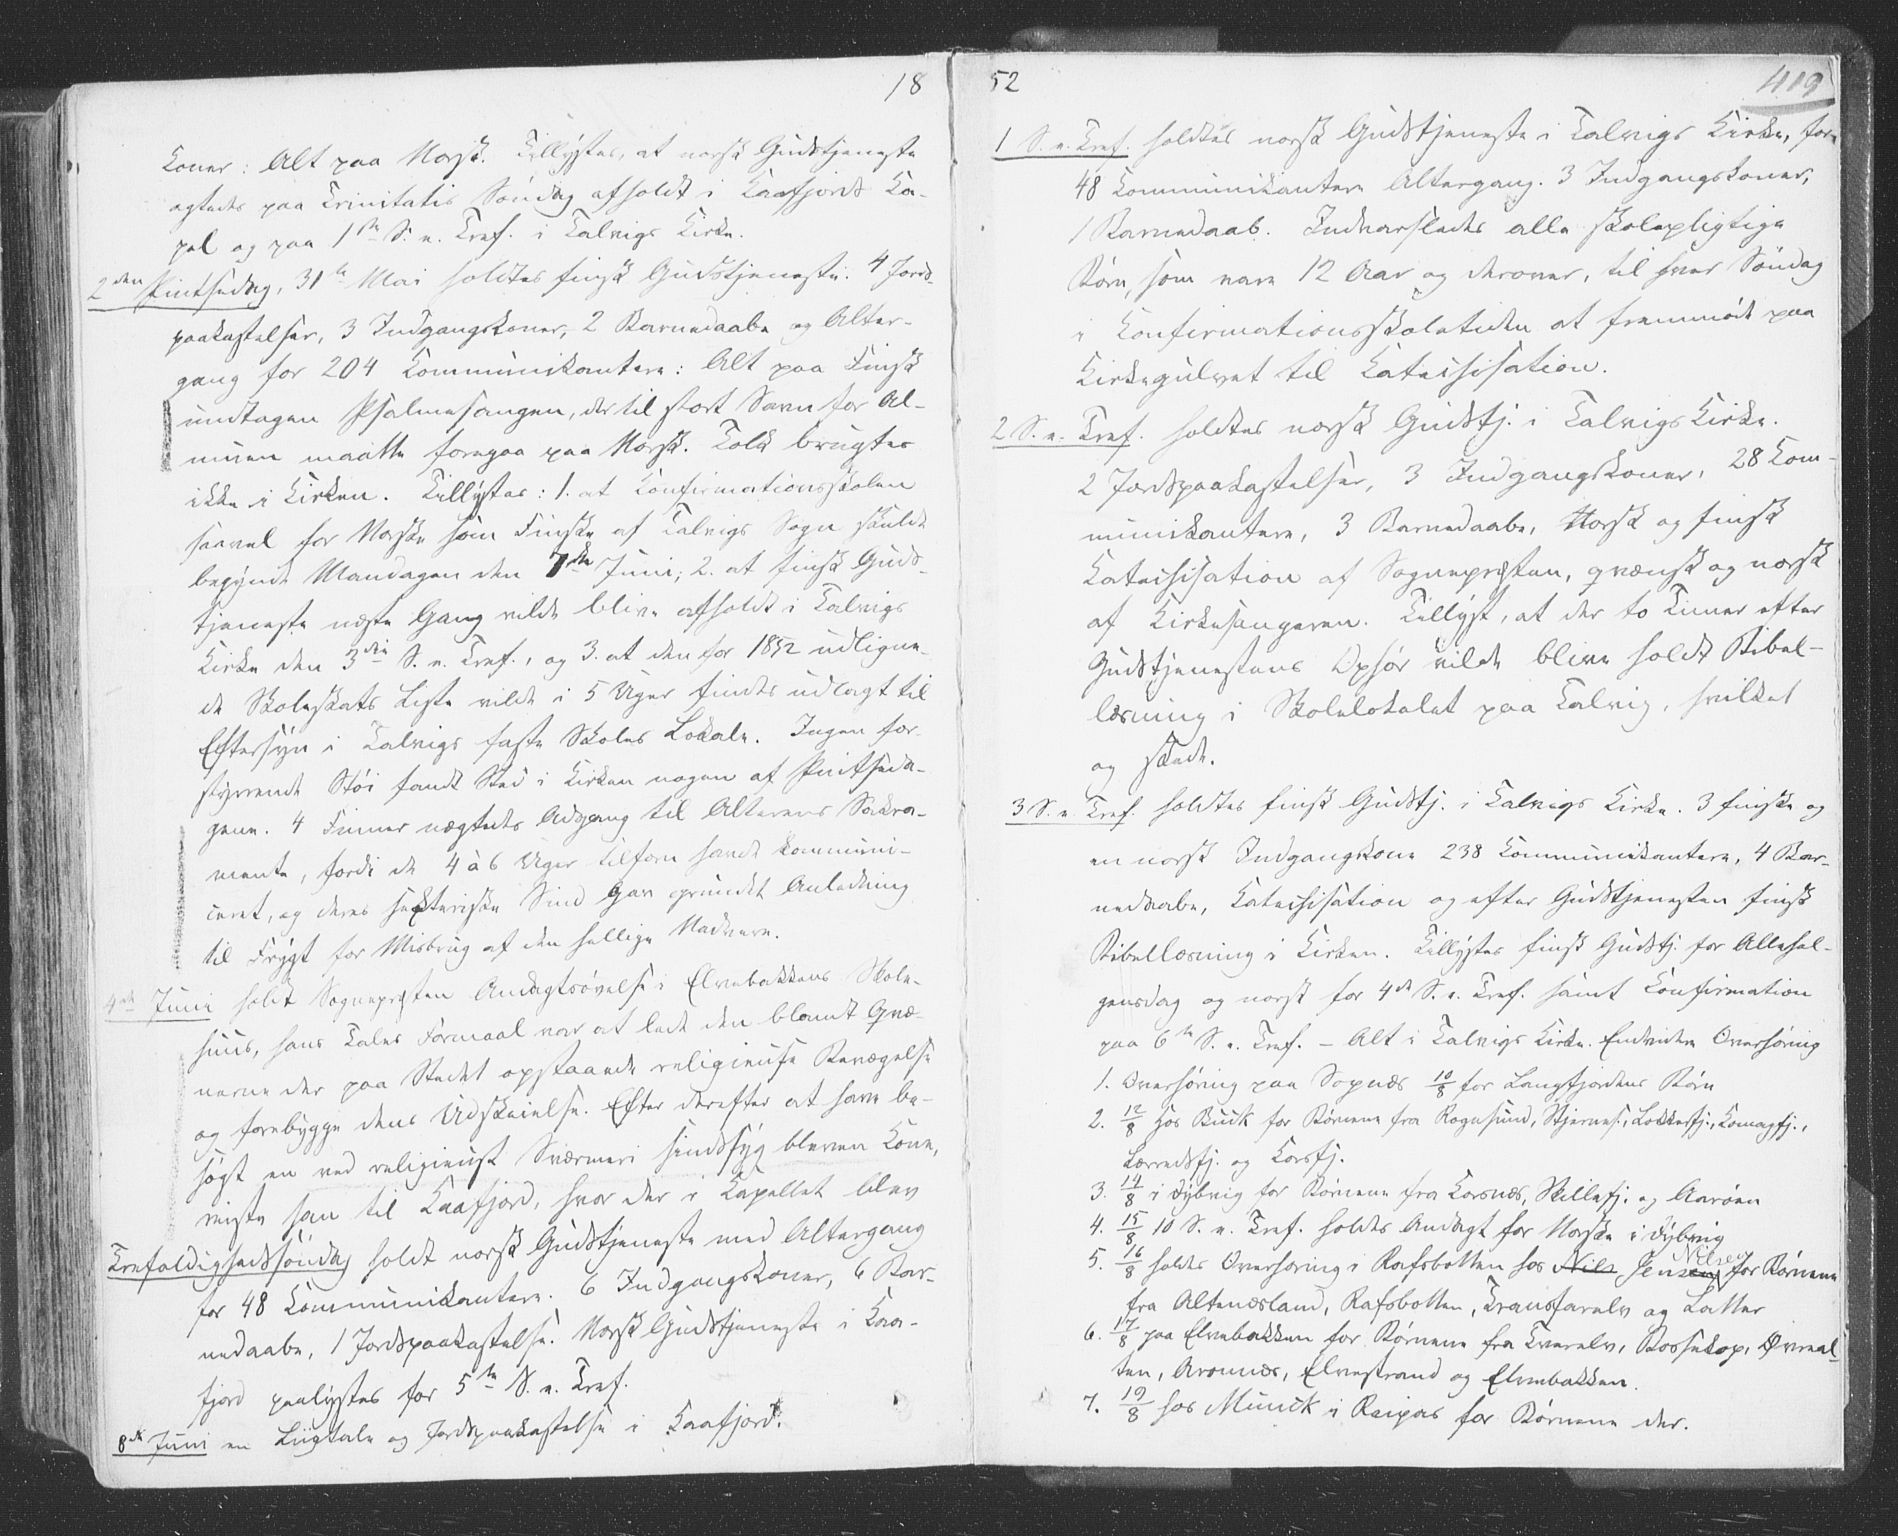 18
koner: Alt paa Norsk. Tillystes, at norsk Gudstjeneste
agtedes paa Trinitatis Søndag afholdt i Kaafjords Ka-
pel og paa 1ste S. e. Tref. i Talvigs Kirke.
2den Pintsedag, 31te Mai holdtes finsk Gudstjeneste. 4 Jords-
paakastelser, 3 Indgangskoner, 2 Barnedaabe og Alter-
gang for 204 Communikantere: Alt paa Finsk
undtagen Psalmesangen, der til stort Savn for Al-
muen maatte foregaa paa Norsk. Tolk brugtes
ikke i Kirken. Tillystes: 1. at Confirmationsskolen
saavel for Norske som Finske af Talvigs Sogn skulde
begynde Mandagen den 7de Juni; 2. at finsk Guds-
tjeneste næste Gang vilde blive afholdt i Talvigs
Kirke den 3die S. e. Tref., og 3. at den for 1852 udligne-
de Skoleskats Liste vilde i 5 Uger findes udlagt til
Eftersyn i Talvigs faste Skoles Lokale. Ingen for-
styrrende Støi fandt Sted i Kirken nogen af Pintseda-
gene. 4 Finner nægtedes Adgang til Alterens Sakra-
mente, fordi de 4 à 6 Uger tilforn havde kommuni-
ceret, og deres sekteriske Sind gav grundet Anledning
til Frygt for Misbrug af den hellige Nadvere.
4de Juni holdt Sognepresten Andagtsøvelse i Elvebakkens Skole-
huus, hans Tales Formaal var at lede den blandt Qvæ-
nerne der paa Stedet opstaaede religieuse Bevægelse
og forebygge dens Udskeielse. Efter derefter at have be-
søgt en ved religieust Sværmeri sindssyg bleven Kone,
reiste han til Kaafjord, hvor der i Capellet blev
Trefoldighedssøndag holdt norsk Gudstjeneste med Altergang
for 48 Communikantere. 6 Indgangskoner, 6 Bar-
nedaabe, 1 Jordspaakastelse. Norsk Gudstjeneste i Kaa-
fjord paalystes for 5te S. e. Tref.
8de Juni en Liigtale og Jordspaakastelse i Kaafjord.
52
419
1 S. e. Tref. holdtes norsk Gudstjeneste i Talvigs Kirke, for
48 Communikantere Altergang. 3 Indgangskoner,
1 Barnedaab. Indvarsledes alle skolepligtige
Børn, som vare 12 Aar og derover, til hver Søndag
i Confirmationsskoletiden at fremmøde paa
Kirkegulvet til Catechisation.
2 S. e. Tref. holdtes norsk Gudstj. i Talvigs Kirke.
2 Jordspaakastelser, 3 Indgangskoner, 28 Com-
munikantere, 3 Barnedaabe, Norsk og finsk
Catechisation af Sognepresten, qvænsk og norsk
af Kirkesangeren. Tillyst, at der to Timer efter
Gudstjenestens Ophør vilde blive holdt Bibel-
læsning i Skolelokalet paa Talvig, hvilket
og skede.
3 S. e. Tref. holdtes finsk Gudstj. i Talvigs Kirke. 3 finske og
en norsk Indgangskone 238 Communikantere, 4 Bar-
nedaabe, Catechisation og efter Gudstjenesten finsk
Bibellæsning i Kirken. Tillystes finsk Gudstj. for Allehel-
gensdag og norsk for 4de S. e. Tref. samt Confirmation
paa 6te S. e. Tref. – Alt i Talvigs Kirke. Endvidere Overhøring
1. Overhøring paa Sopnæs 10/8 for Langfjordens Børn
2. 12/8 Hos Buck for Børnene fra Rognsund, Stjernes., Lokkefj., Komagfj.,
Lerredsfj. og Korsfj.
3. 14/8 i Dybvig for Børnene fra Korsnæs, Skillefj. og Aarøen
4. 15/8 10 S. e. Tref. holdes Andagt for Norske i Dybvig
5. 16/8 holdes Overhøring i Rafsbotten hos Nils Jensen Nilsen for Børnene
fra Altenæsland, Rafsbotten, Transfarelv og Latter
6. 17/8 paa Elvebakken for Børnene fra Tverelv, Bossekop, Øvreal-
ten, Aronnæs, Elvestrand og Elvebakken.
7. 19/8 hos Munck i Raipas for Børnene der.